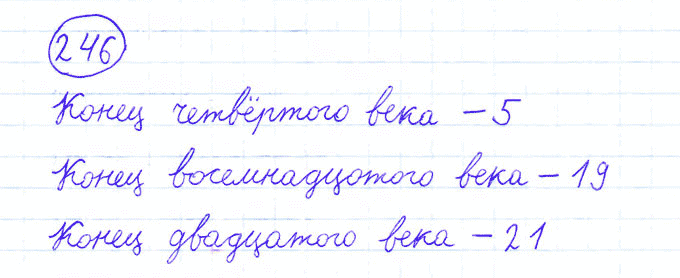 246
Конец четвёртого века – 5
Конец восемнадцатого века – 19
Конец двадцатого века – 21